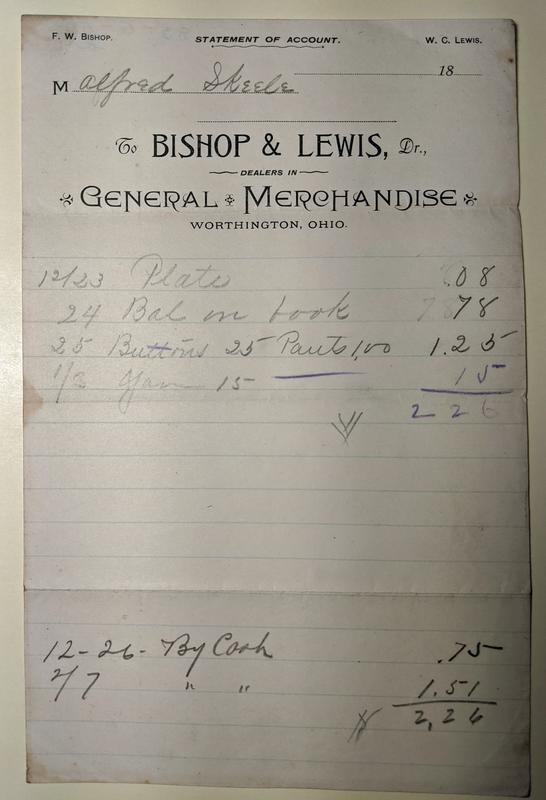 F. W. BISHOP. STATEMENT OF ACCOUNT. W. C. LEWIS.
18
M Alfred Skeele
To BISHOP & LEWIS, Dr.,
DEALERS IN
GENERAL MERCHANDISE
WORTHINGTON, OHIO.
12/23 Plate .08
24 Bal on book 78
25 Buttons 25 Pants 1,00 1.25
1/2 Yarn 15 15
2 26
12-26- By Cash .75
2/7 " " 1.51
2,26